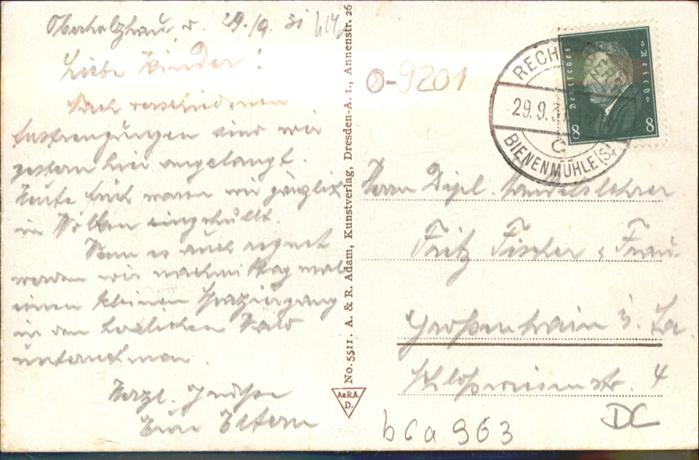 Oberholzhau, d. 29./9. 31
Liebe Kinder!
Nach verschiedenen
Anstrengungen sind wir
gestern hier angelangt.
Heute früh waren wir gänzlich
in Wolken eingehüllt.
Wenn es auch regnet
werden wir nachmittag mal
einen kleinen Spaziergang
in den herrlichen Wald
unternehmen.
Herzl. Grüße
Eure Eltern
No. 5511. A. & R. Adam, Kunstverlag, Dresden-A. 1, Annenstr. 26
A&RA.
D.
0-9201
RECH
29.9.3
c
BIENENMÜHLE (S
8 8
Herrn Dipl. Handelslehrer
Fritz Fischer u. Frau
Großenhain i. Sa.
str. 4
bca 963
DC